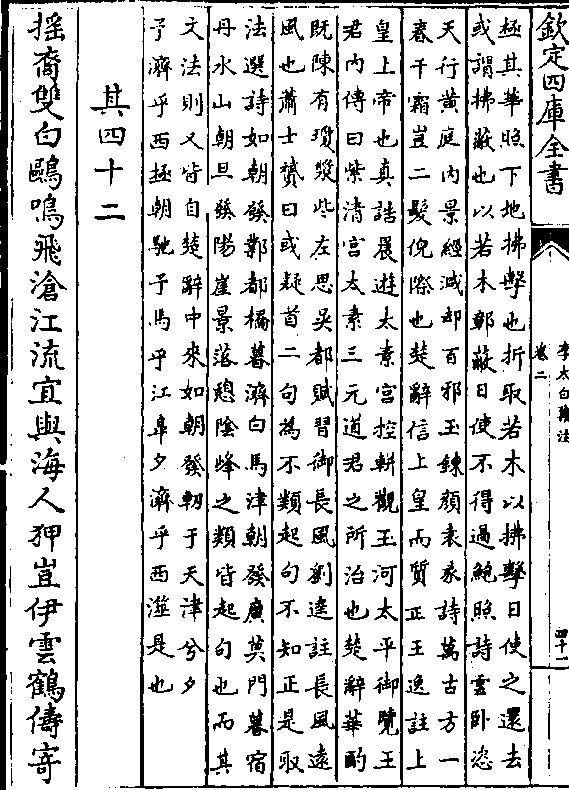 欽定四庫全書
李太白集注
卷二
四十一
極其華照下地拂擊也折取若木以拂擊日使之還去
或謂拂蔽也以若木鄣蔽日使不得過鮑照詩雲臥恣
天行黄庭内景經減却百邪玉鍊顔袁彖詩萬古方一
春千霜豈二髮倪際也楚辭信上皇而質正王逸註上
皇上帝也真誥晨遊太素宫控軿觀玉河太平御覽王
君内傳曰紫清宫太素三元道君之所治也楚辭華酌
既陳有瓊漿些左思吴都賦習御長風劉逵註長風遠
風也蕭士贇曰或疑首二句為不類起句不知正是取
法選詩如朝發鄴都橋暮濟白馬津朝發廣莫門暮宿
丹水山朝旦發陽崖景落憩陰峰之類皆起句也而其
文法則又皆自楚辭中來如朝發軔于天津兮夕
予濟乎西極朝馳予馬乎江皐夕濟乎西澨是也
其四十二
摇裔雙白鷗鳴飛滄江流宜與海人狎豈伊雲鶴儔寄